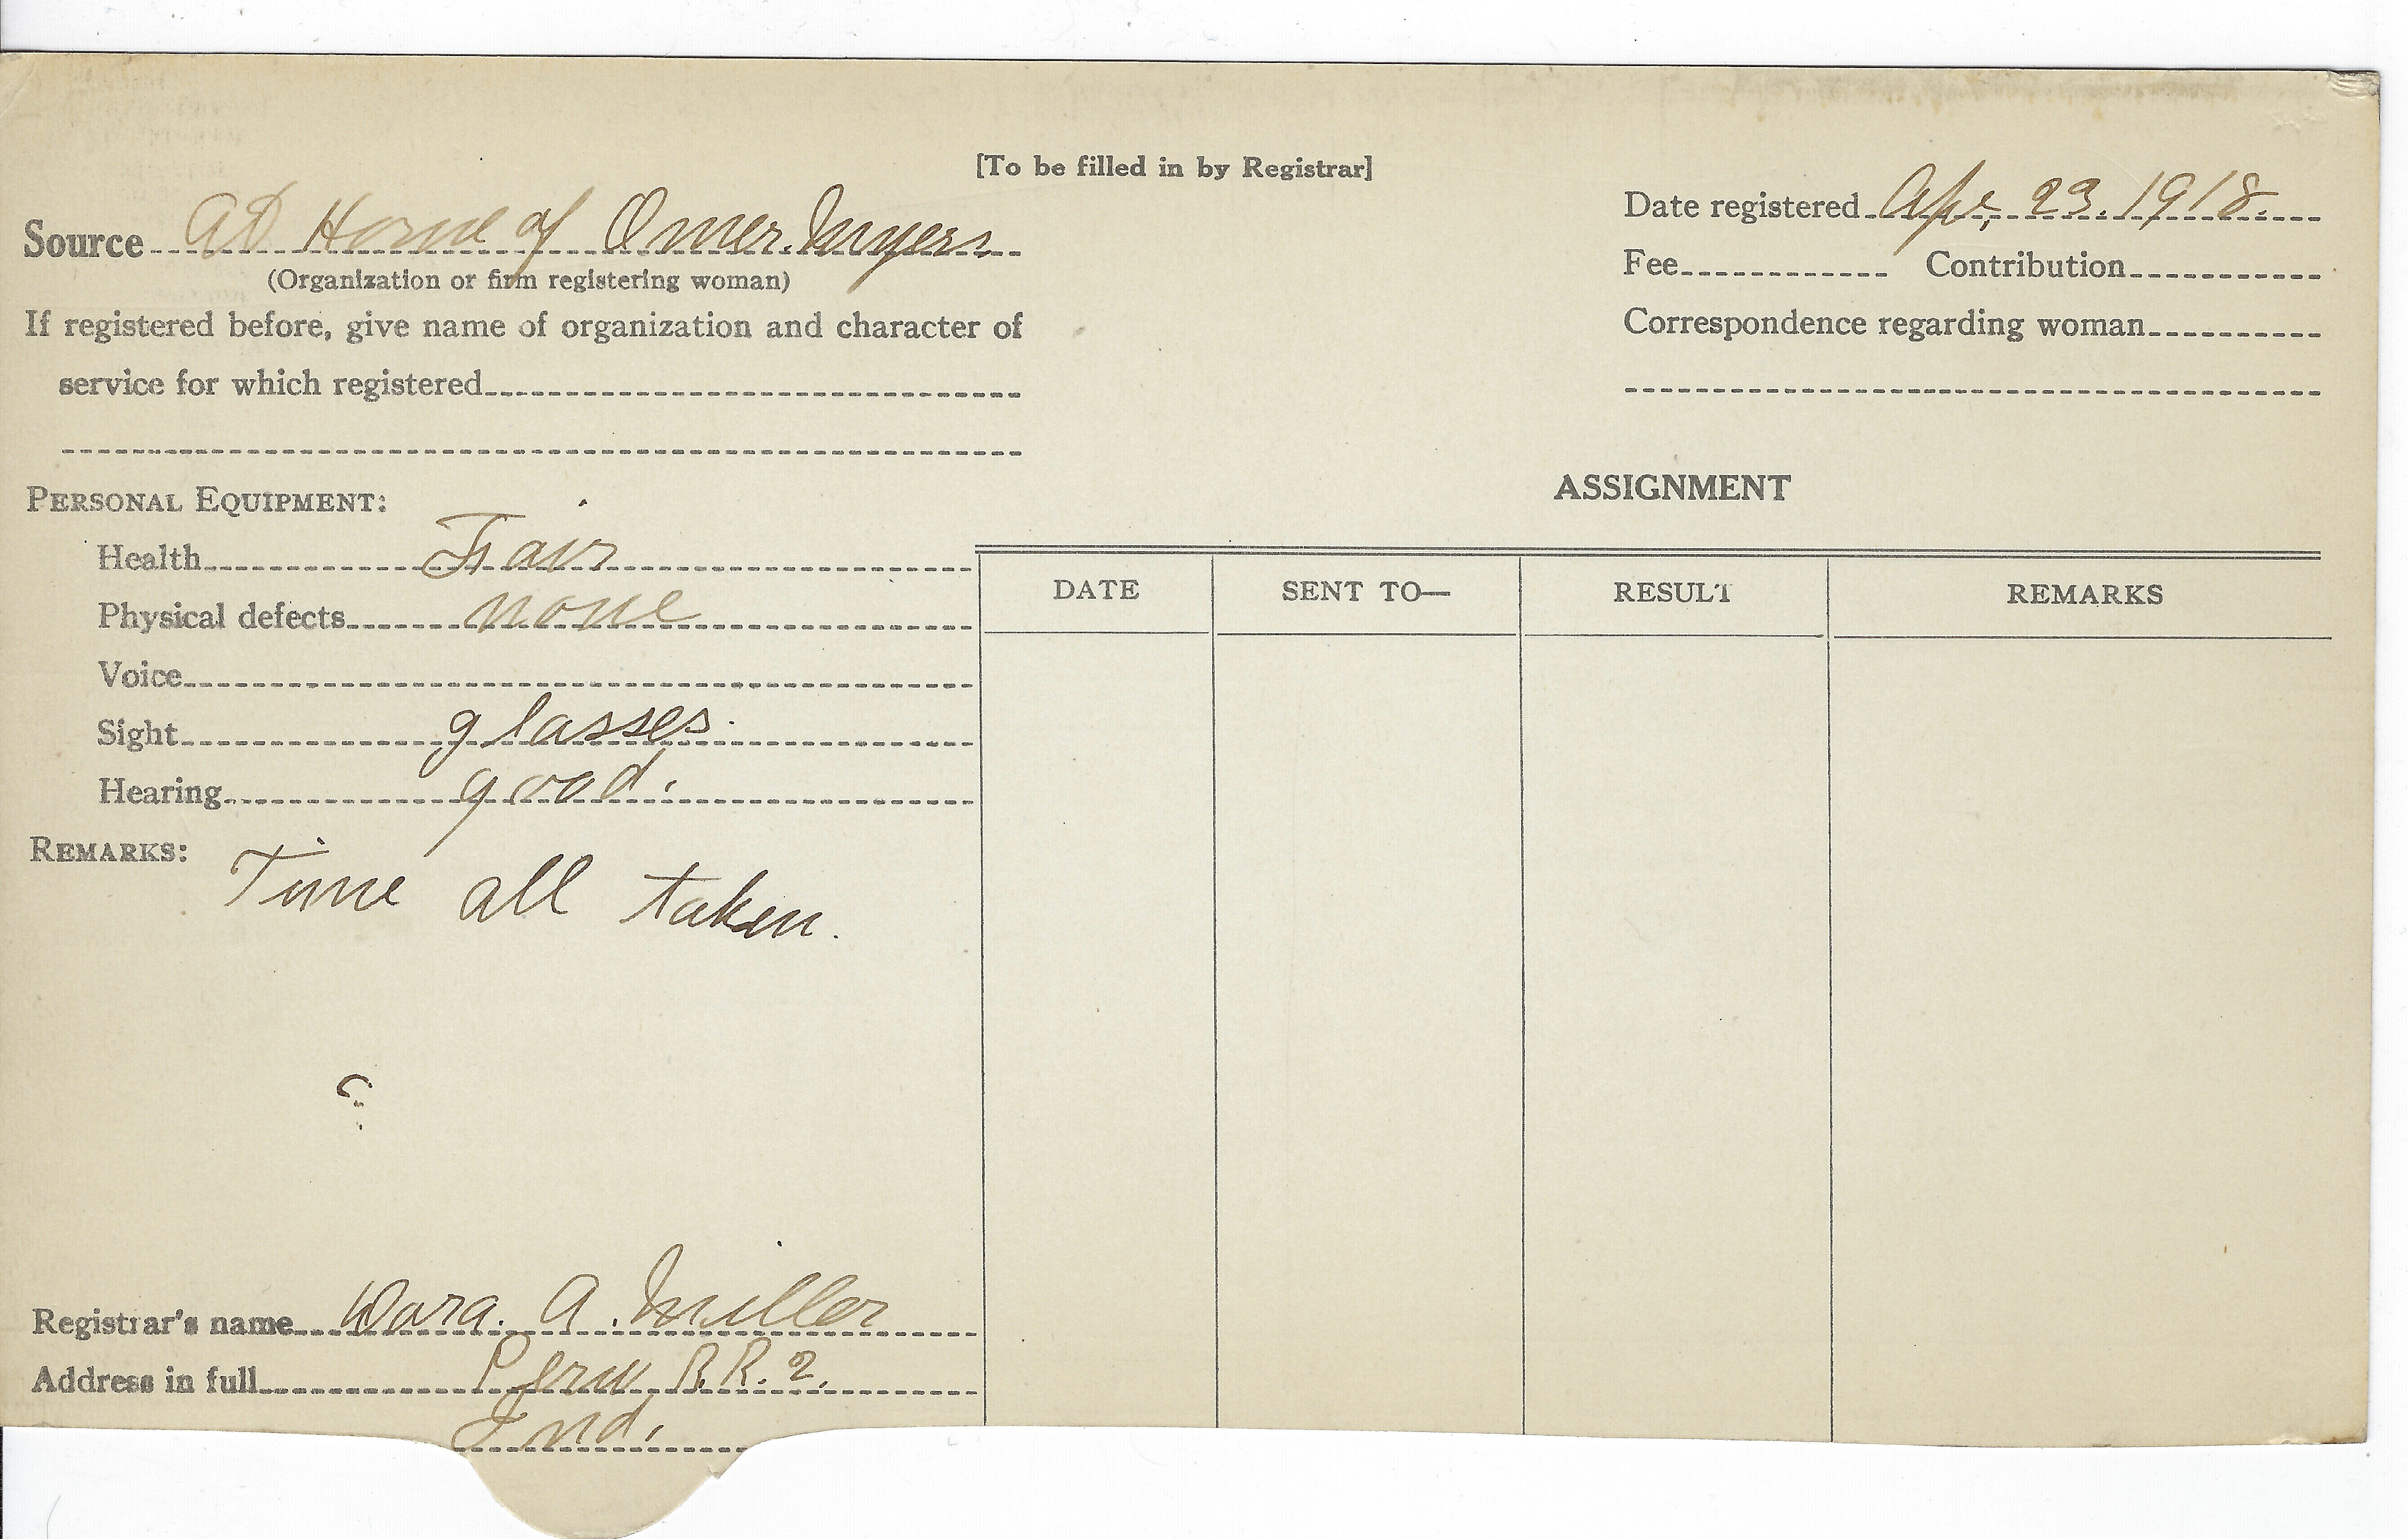 [To be filled in by Registrar]
Source At Home of Omer Myers
(Organization or firm registering woman)
If registered before, give name of organization and character of
service for which registered
Date registered Apr. 23. 1918.
Fee Contribution
Correspondence regarding woman
PERSONAL EQUIPMENT:
Health Fair
Physical defects none
Voice
Sight glasses.
Hearing good.
REMARKS: Time all taken.
Registrar's name Dora. A. Miller
Address in full Peru R.R. 2.
Ind.
ASSIGNMENT
DATE SENT TO— RESULT REMARKS